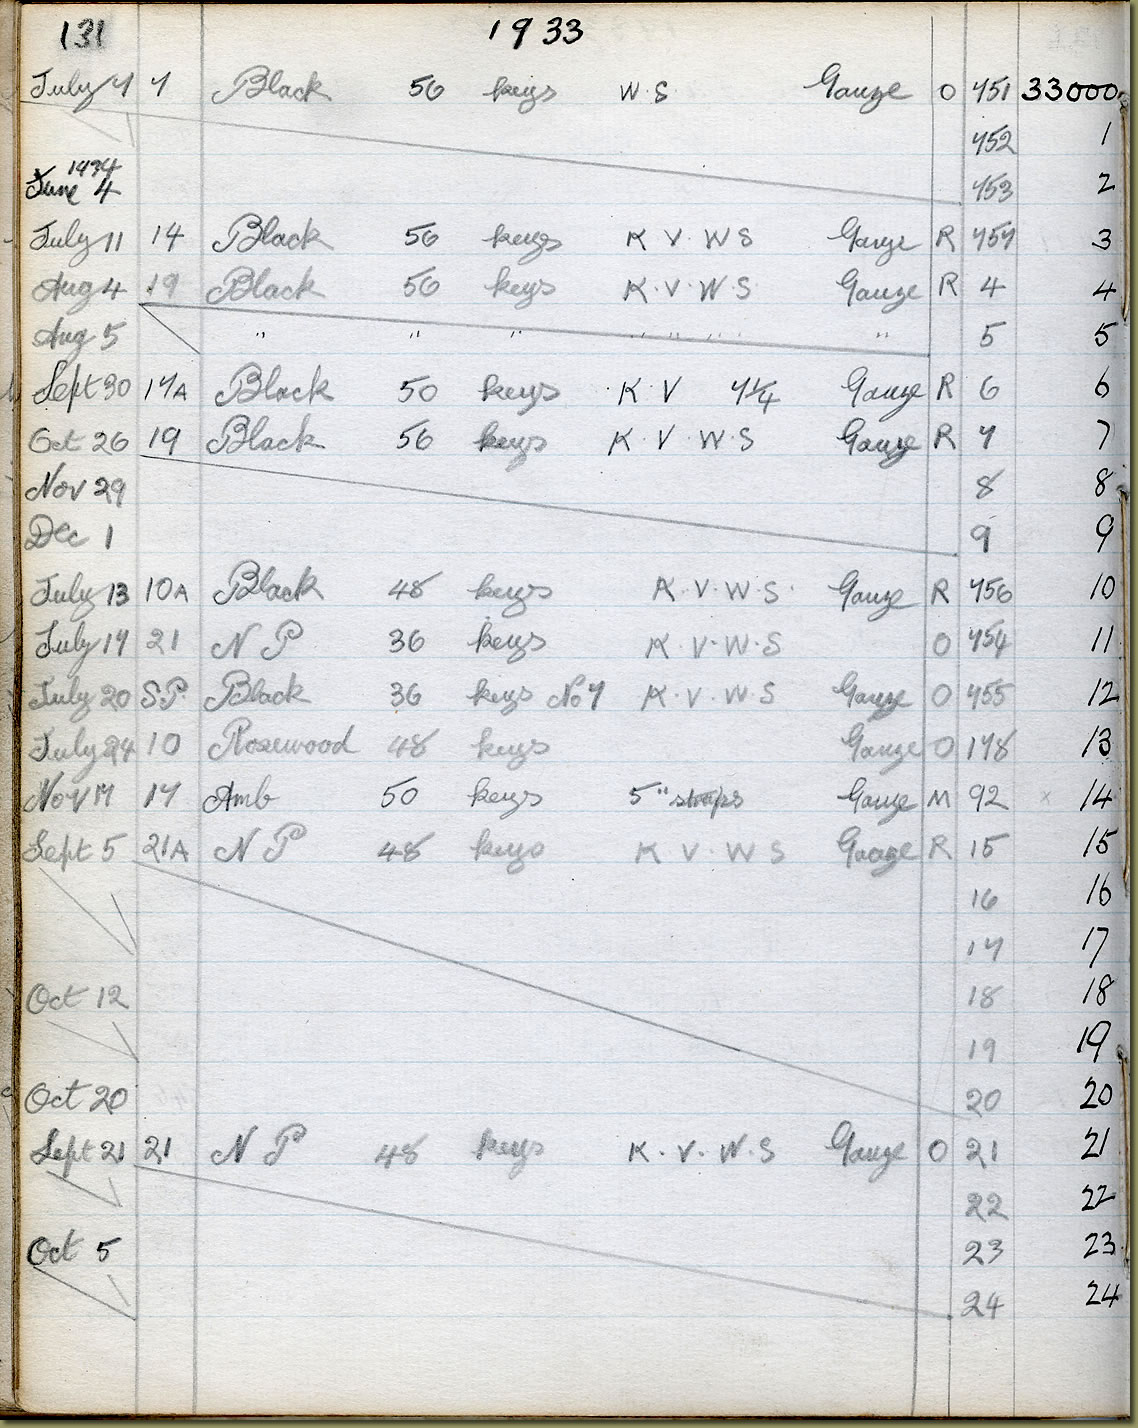 131 1933
July 7 7 Black 56 keys W.S Gauze O 751 33000
752 1
1934
June 4 753 2
July 11 14 Black 56 keys K V. W S Gauze R 757 3
Aug 4 19 Black 56 keys K.V.W.S Gauze R 4 4
Aug 5 " " " " " " " " 5 5
Sept 30 17A Black 50 keys K.V 7¼ Gauze R 6 6
Oct 26 19 Black 56 keys K.V.W.S Gauze R 7 7
Nov 29 8 8
Dec 1 9 9
July 13 10A Black 48 keys K.V.W.S. Gauze R 756 10
July 17 21 N P 36 keys K.V.W.S O 754 11
July 20 S.P. Black 36 keys No 7 K.V.W.S Gauze O 755 12
July 24 10 Rosewood 48 keys Gauze O 178 13
Nov 17 17 Amb 50 keys 5" straps Gauze M 92 x 14
Sept 5 21A N P 48 keys K V.W S Gauze R 15 15
16 16
17 17
Oct 12 18 18
19 19
Oct 20 20 20
Sept 21 21 N P 48 keys K.V.W.S Gauze O 21 21
22 22
Oct 5 23 23
24 24